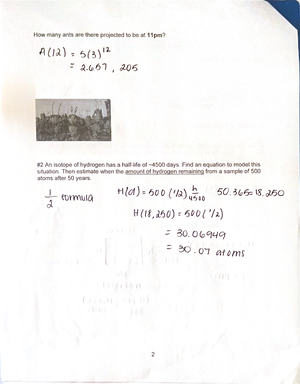 How many ants are there projected to be at 11pm?
A(12) = 5(3)^12
= 2.657, 205
#2 An isotope of hydrogen has a half-life of ~4500 days. Find an equation to model this
situation. Then estimate when the amount of hydrogen remaining from a sample of 500
atoms after 50 years.
1/2 formula
H(d) = 500 (1/2) h/4500
50.365=18,250
H(18,250) = 500 (1/2)
= 30.06949
= 30.07 atoms
2